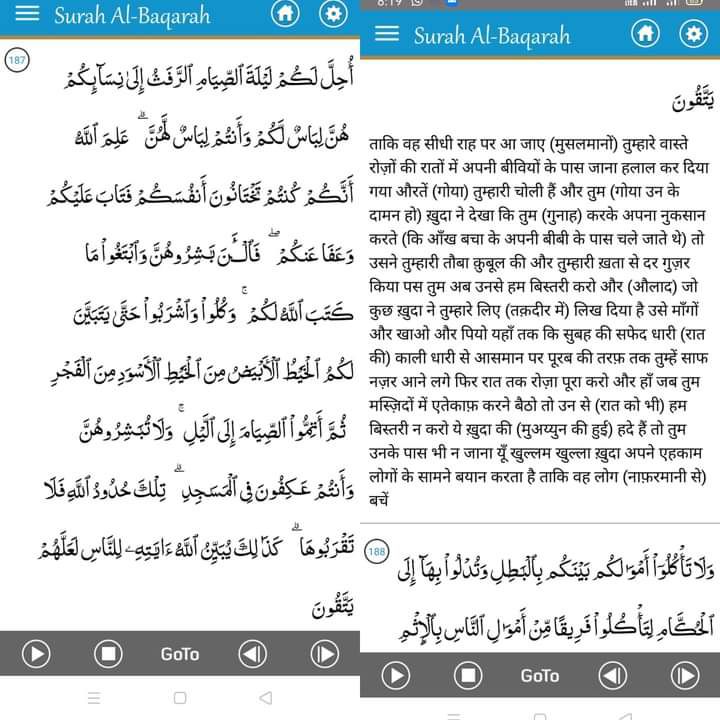 Surah Al-Baqarah
187
أُحِلَّ لَكُمْ لَيْلَةَ ٱلصِّيَامِ ٱلرَّفَثُ إِلَىٰ نِسَآئِكُمْ
هُنَّ لِبَاسٌ لَّكُمْ وَأَنتُمْ لِبَاسٌ لَّهُنَّ ۗ عَلِمَ ٱللَّهُ
أَنَّكُمْ كُنتُمْ تَخْتَانُونَ أَنفُسَكُمْ فَتَابَ عَلَيْكُمْ
وَعَفَا عَنكُمْ ۖ فَٱلْـَٰٔنَ بَـٰشِرُوهُنَّ وَٱبْتَغُوا۟ مَا
كَتَبَ ٱللَّهُ لَكُمْ ۚ وَكُلُوا۟ وَٱشْرَبُوا۟ حَتَّىٰ يَتَبَيَّنَ
لَكُمُ ٱلْخَيْطُ ٱلْأَبْيَضُ مِنَ ٱلْخَيْطِ ٱلْأَسْوَدِ مِنَ ٱلْفَجْرِ
ثُمَّ أَتِمُّوا۟ ٱلصِّيَامَ إِلَى ٱلَّيْلِ ۚ وَلَا تُبَـٰشِرُوهُنَّ
وَأَنتُمْ عَـٰكِفُونَ فِى ٱلْمَسَـٰجِدِ ۗ تِلْكَ حُدُودُ ٱللَّهِ فَلَا
تَقْرَبُوهَا ۗ كَذَٰلِكَ يُبَيِّنُ ٱللَّهُ ءَايَـٰتِهِۦ لِلنَّاسِ لَعَلَّهُمْ
يَتَّقُونَ
GoTo
8:19
Surah Al-Baqarah
يَتَّقُونَ
ताकि वह सीधी राह पर आ जाए (मुसलमानों) तुम्हारे वास्ते
रोज़ों की रातों में अपनी बीवियों के पास जाना हलाल कर दिया
गया औरतें (गोया) तुम्हारी चोली हैं और तुम (गोया उन के
दामन हो) ख़ुदा ने देखा कि तुम (गुनाह) करके अपना नुकसान
करते (कि ऑंख बचा के अपनी बीबी के पास चले जाते थे) तो
उसने तुम्हारी तौबा क़ुबूल की और तुम्हारी ख़ता से दर गुज़र
किया पस तुम अब उनसे हम बिस्तरी करो और (औलाद) जो
कुछ ख़ुदा ने तुम्हारे लिए (तक़दीर में) लिख दिया है उसे माँगों
और खाओ और पियो यहाँ तक कि सुबह की सफेद धारी (रात
की) काली धारी से आसमान पर पूरब की तरफ़ तक तुम्हें साफ
नज़र आने लगे फिर रात तक रोज़ा पूरा करो और हाँ जब तुम
मस्ज़िदों में एतेकाफ़ करने बैठो तो उन से (रात को भी) हम
बिस्तरी न करो ये ख़ुदा की (मुअय्युन की हुई) हदे हैं तो तुम
उनके पास भी न जाना यूँ खुल्लम खुल्ला ख़ुदा अपने एहकाम
लोगों के सामने बयान करता है ताकि वह लोग (नाफ़रमानी से)
बचें
188
وَلَا تَأْكُلُوٓا۟ أَمْوَٰلَكُم بَيْنَكُم بِٱلْبَـٰطِلِ وَتُدْلُوا۟ بِهَآ إِلَى
ٱلْحُكَّامِ لِتَأْكُلُوا۟ فَرِيقًا مِّنْ أَمْوَٰلِ ٱلنَّاسِ بِٱلْإِثْمِ
GoTo